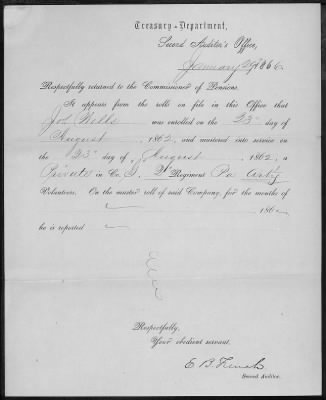 Treasury Department,
Second Auditor's Office,
January 29, 1866.
Respectfully returned to the Commissioner of Pensions.
It appears from the rolls on file in this Office that
Job Wells was enrolled on the 23" day of
August, 1862, and mustered into service on
the 23" day of August, 1862, a
Private in Co. 2" Regiment Pa Arty
Volunteers. On the muster roll of said Company, for the months of
186
he is reported
Respectfully,
Your obedient servant,
E. B. French
Second Auditor.